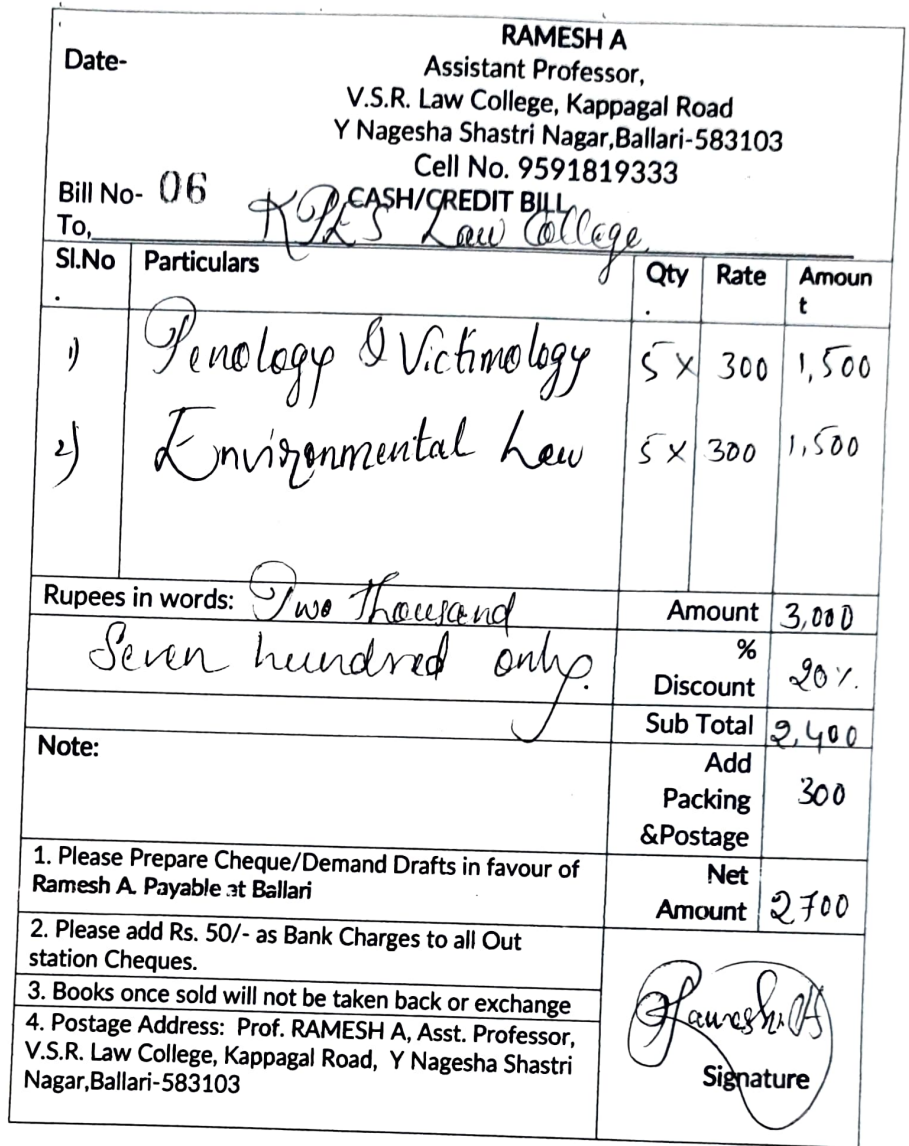 RAMESH A
Date-
Assistant Professor,
V.S.R. Law College, Kappagal Road
Y Nagesha Shastri Nagar,Ballari-583103
Cell No. 9591819333
Bill No- 06
CASH/CREDIT BILL
To, KPES Law College
Sl.No. Particulars Qty. Rate Amount
1) Penology & Victimology 5 X 300 1,500
2) Environmental Law 5 X 300 1,500
Rupees in words: Two Thousand Amount 3,000
Seven hundred only. % Discount 20%.
Sub Total 2,400
Note:
Add Packing &Postage 300
1. Please Prepare Cheque/Demand Drafts in favour of
Ramesh A. Payable at Ballari
Net Amount 2700
2. Please add Rs. 50/- as Bank Charges to all Out
station Cheques.
3. Books once sold will not be taken back or exchange
4. Postage Address: Prof. RAMESH A, Asst. Professor,
V.S.R. Law College, Kappagal Road, Y Nagesha Shastri
Nagar,Ballari-583103
Ramesh A
Signature